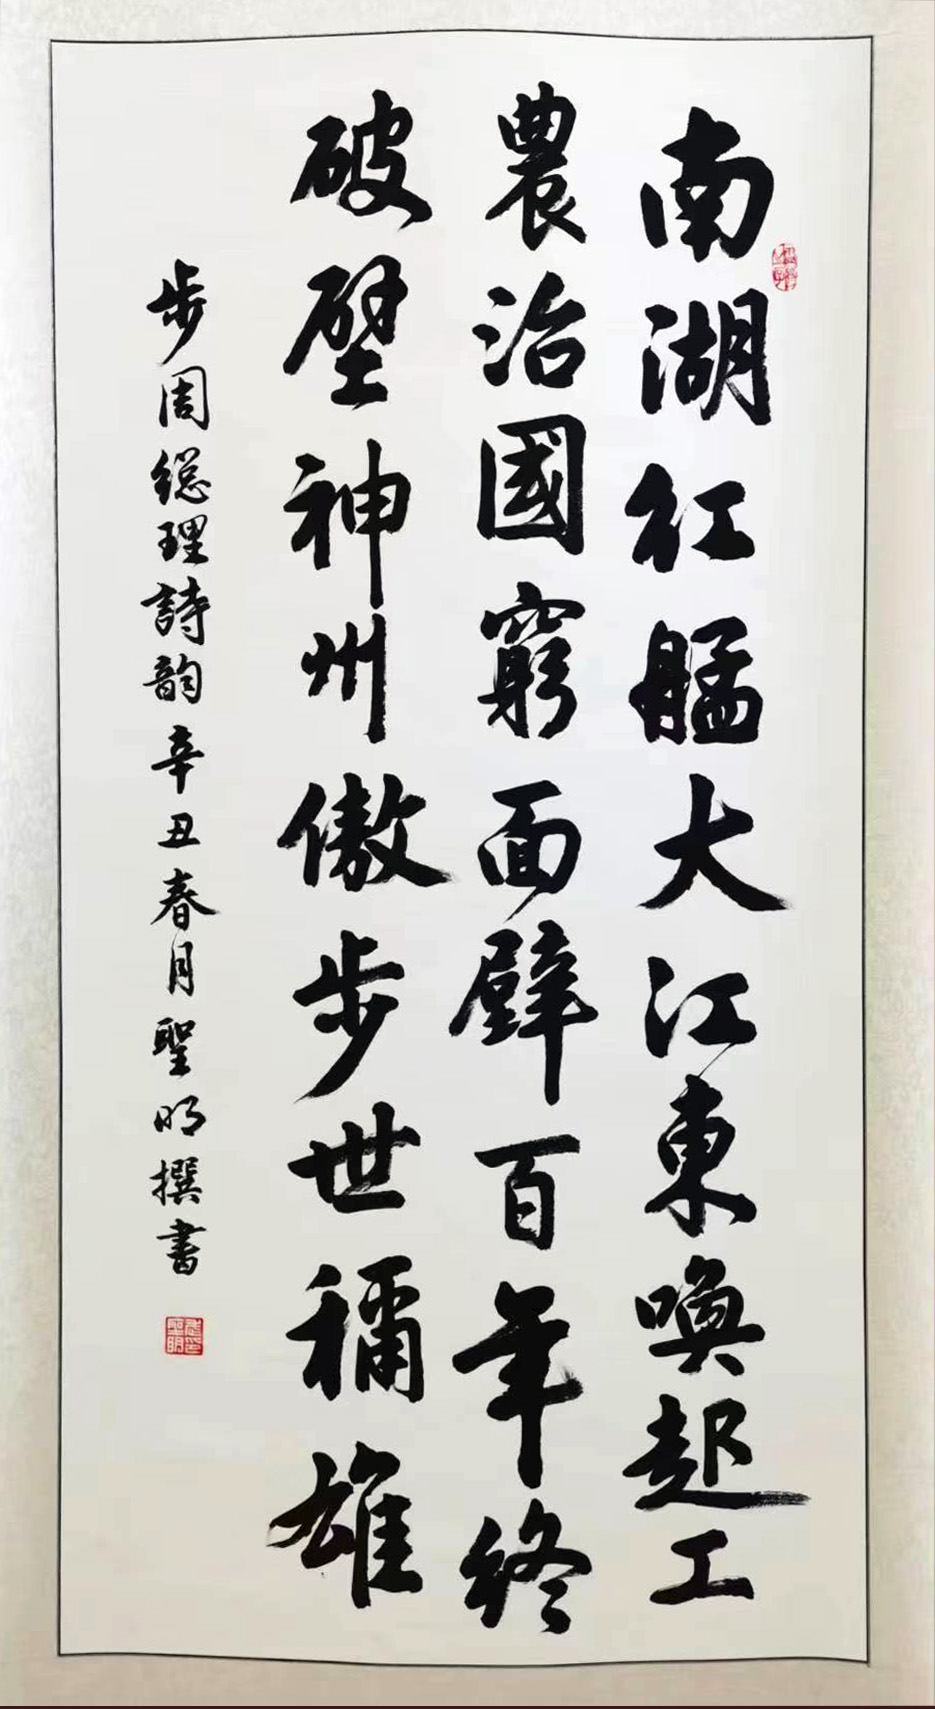 南湖红艋大江東喚起工
農治國窮面壁百年終
破壁神州傲步世稱雄
步周總理詩韵辛丑春月聖明撰書